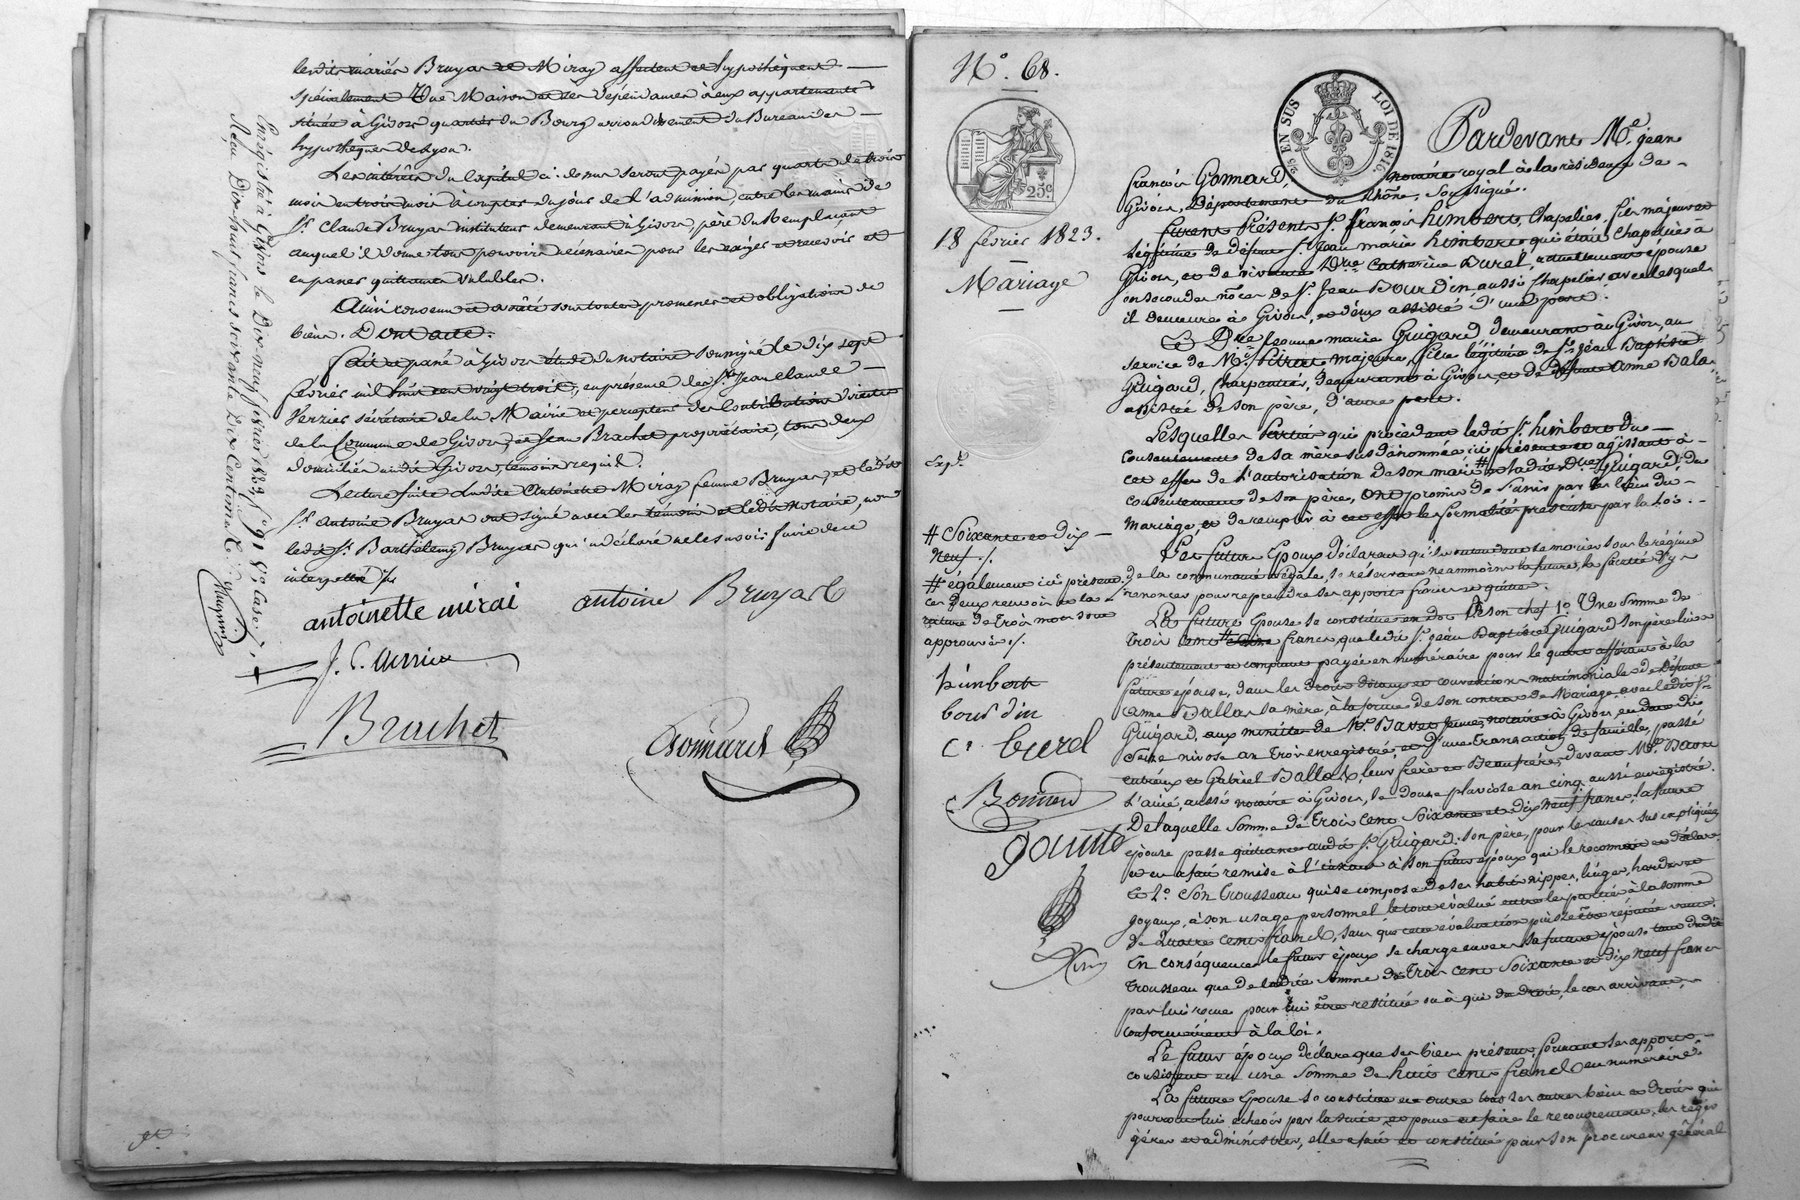 lesdits mariés Bruyas et Miray affectent et hypothèquent
spécialement Une Maison et ses dépendances à eux appartenants
située à Givors quartier du Bourg arrondissement du Bureau des
hypothèques de Lyon.
Les intérêts du Capital ci-dessus seront payés par quarts de trois
mois en trois mois à compter du jour de l'admission, entre les mains de
Sr. Claude Bruyas instituteur demeurant à Givors, père du Remplaçant
auquel il donne tous pouvoirs nécessaires pour les exiger et recevoir et
en passer quittances valables.
Ainsi convenu et arrêté sous toutes promesses et obligations de
biens. Dont acte.
Fait et passé à Givors étude du notaire soussigné le dix sept
février mil huit cent vingt trois, en présence des Srs. Jean Claude
Verrier sécrétaire de la Mairie et percepteur des Contributions directes
de la Commune de Givors, et Jean Brachet propriétaire, tous deux
domiciliés audit Givors, témoins requis.
Lecture faite ladite Antoinette Miray femme Bruyas, et ledit
Sr. Antoine Bruyas ont signé avec les témoins et ledit notaire, non
ledit Sr. Barthélemy Bruyas qui a déclaré ne le savoir faire de ce
interpellé
antoinette mirai antoine Bruyas
J. C. Verrier
Brachet Gonnard
Enrégistré à Givors le Dix neuf février 1823 fo. 91 Vo. Case 7.
Reçu Dix huit francs soixante Dix Centimes
No. 68.
25c.
2/5 EN SUS LOI DE 1816
18 février 1823.
Mariage
Pardevant Me. jean
françois Gonnard, notaire royal à la résidence de
Givors, Département du Rhône, Soussigné.
furent Présents Sr. françois himbert, Chapelier, fils majeur et
légitime de défunt Sr. Jean marie himbert qui était chapelier à
Givors, et de vivante Dme. Catherine Burel, actuellement épouse
en secondes noces de Sr. Jean Bourdin aussi Chapelier avec lesquels
il demeure à Givors, et d'eux assisté d'une part.
Et Dlle jeanne marie Guigard demeurant à Givors, au
service de Mr. majeure, fille légitime de Sr. jean Baptiste
Guigard, Charpentier, demeurant à Givors, et de défunte Anne Balas
assistée de son père, d'autre part.
Lesquelles Parties qui procèdent ledit Sr. himbert du
consentement de sa mère susdénommée, ici présente et agissant à
cet effet de l'autorisation de son mari # et ladite Dlle Guigard, du
consentement de son père, ont promis de s'unir par les liens du
Mariage et de remplir à cet effet les formalités prescrites par la loi.
Les futurs Epoux déclarent qu'ils entendent se marier sous le régime
de la communauté légale, se réservant néanmoins la future, la faculté d'y
renoncer pour reprendre ses apports francs et quittes.
La future Epouse se constitue en dot De son chef 1o. Une somme de
trois cent # francs, que ledit Sr. jean Baptiste Guigard son père lui a
présentement et comptant payée en numéraire pour le quart afférant à la
future épouse, dans les droits dotaux et conventions matrimoniales de Défunte
anne Ballas sa mère, à la forme de son contrat de Mariage avec ledit Sr.
Guigard, aux minutes de Me. Bavet jeune, notaire à Givors, en date du
seize nivose an trois enregistré, et d'une transaction de famille, passé
entr'eux et Gabriel Ballas, leur frère et Beaufrère, devant Me. Bavet
l'ainé, aussi notaire à Givors, le douze pluviose an cinq, aussi enrégistré.
De laquelle somme de trois cent soixante et dix neuf francs, la future
épouse passe quittance audit Sr. Guigard, son père, pour les causes sus expliquées
et en a fait remise à l'instant à son futur époux qui le reconnait et déclare
Et 2o. Son Trousseau qui se compose de ses habits nippes, linges, hardes et
joyaux, à son usage personnel le tout évalué entre les parties à la somme
de Quatre cents francs, sans que cette évaluation puisse être réputée vente.
En conséquence le futur époux se charge envers sa future épouse tant dudit
Trousseau que de ladite somme de trois cent soixante et dix neuf francs
par lui reçue pour lui être restitué ou à qui de droit, le cas arrivant,
conformément à la loi.
Le futur époux déclare que ses biens présents formant ses apports
consistent en une somme de huit cents francs en numéraire.
La future épouse se constitue en outre tous ses autres biens et droits qui
pourront lui échoir par la suite, et pour en faire le recouvrement, les régir
gérer et administrer, elle a fait et constitué pour son procureur général
Expé.
# Soixante et dix
neuf ./.
# également ici présent.
ces deux renvois et la
rature de trois mots sont
approuvés ./.
himbert
bourdin
ce. burel
Bonnard